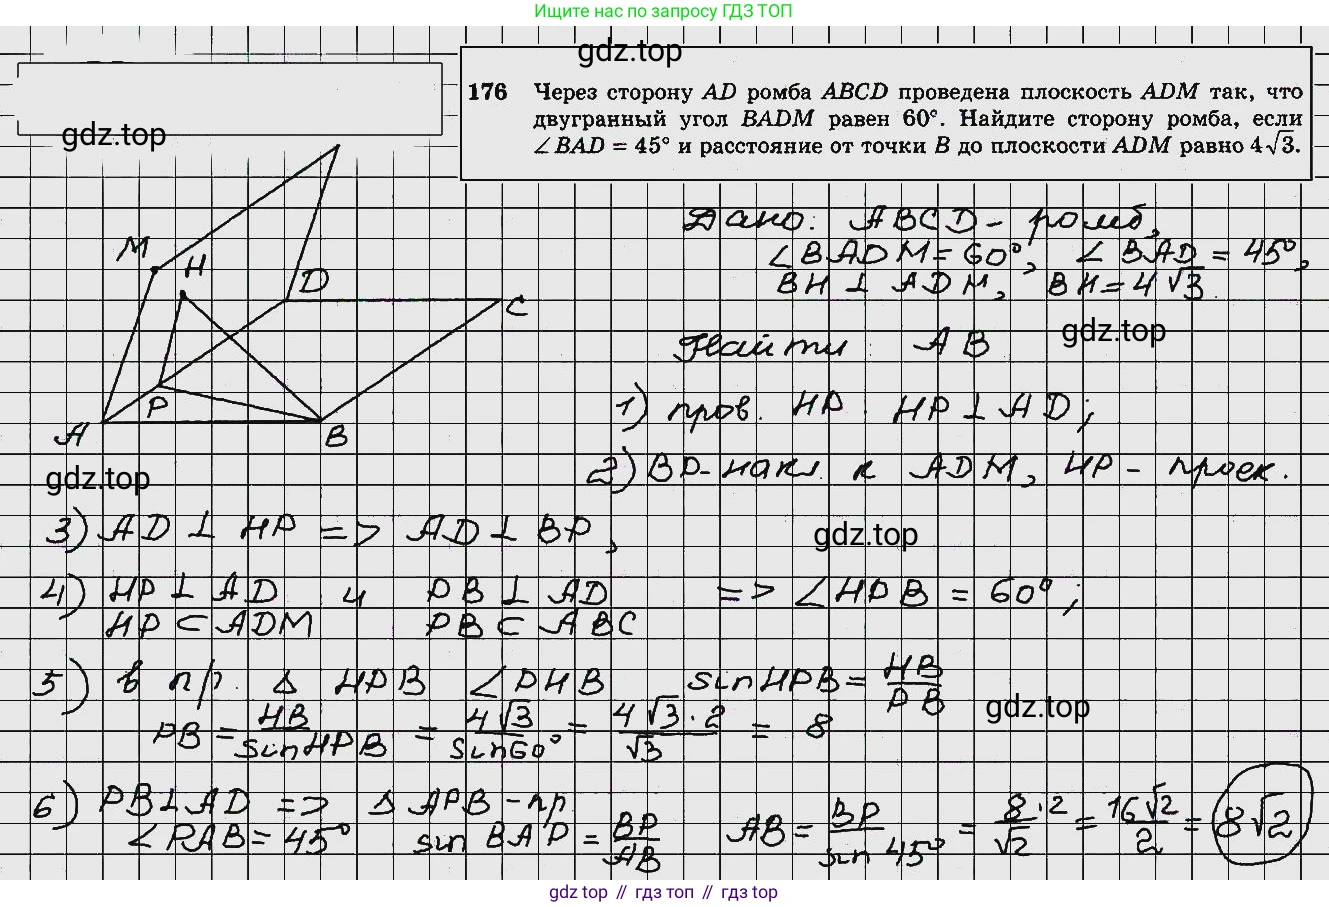 Ищите нас по запросу ГДЗ ТОП
gdz.top
176 Через сторону AD ромба ABCD проведена плоскость ADM так, что
двугранный угол BADM равен 60°. Найдите сторону ромба, если
∠BAD = 45° и расстояние от точки B до плоскости ADM равно 4√3.
gdz.top
M
H
D
C
P
A
B
Дано: ABCD - ромб,
∠BADM = 60°, ∠BAD = 45°,
BH ⊥ ADM, BH = 4√3.
gdz.top
Найти: AB
1) пров. HP : HP ⊥ AD;
2) BP - накл. к ADM, HP - проек.
gdz.top
3) AD ⊥ HP => AD ⊥ BP,
gdz.top
4) HP ⊥ AD и PB ⊥ AD => ∠HPB = 60°;
HP ⊂ ADM PB ⊂ ABC
5) в пр. Δ HPB ∠PHB sin HPB = HB/PB
gdz.top
PB = HB/sin HPB = 4√3/sin 60° = 4√3·2/√3 = 8
6) PB ⊥ AD => Δ APB - пр
∠PAB = 45° sin BAP = BP/AB AB = BP/sin 45° = 8·2/√2 = 16√2/2 = 8√2
gdz top // гдз топ // gdz top